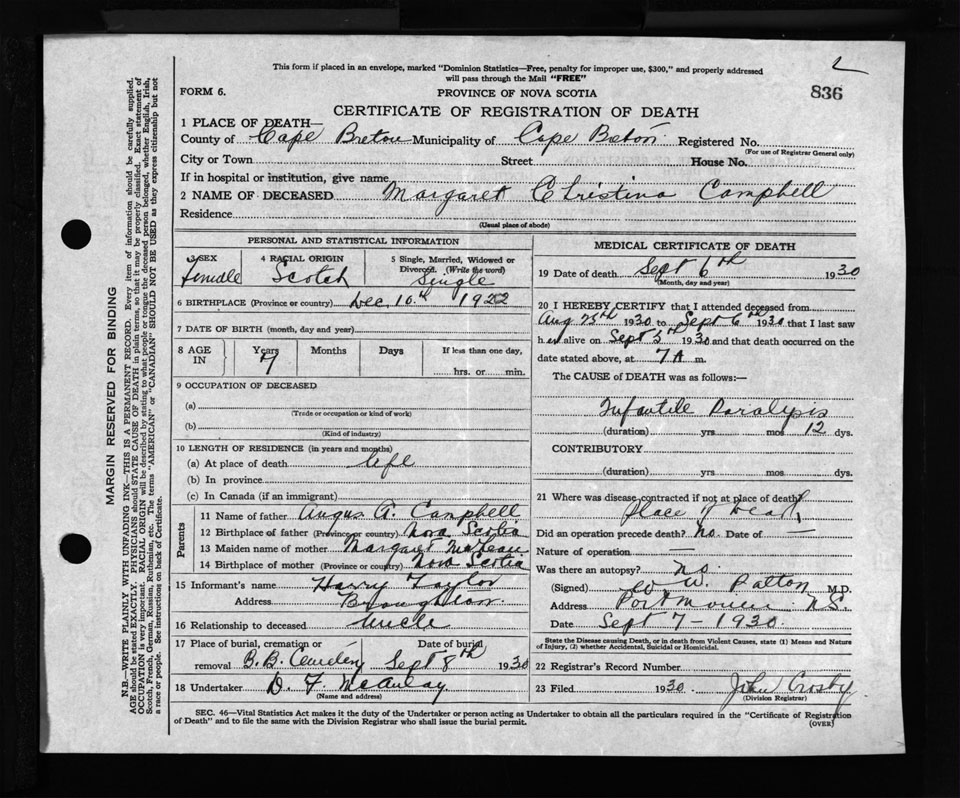 2
This form if placed in an envelope, marked "Dominion Statistics—Free, penalty for improper use, $300," and properly addressed
will pass through the Mail "FREE"
FORM 6. PROVINCE OF NOVA SCOTIA 836
CERTIFICATE OF REGISTRATION OF DEATH
1 PLACE OF DEATH—
County of Cape Breton Municipality of Cape Breton Registered No.
(For use of Registrar General only)
City or Town Street House No.
If in hospital or institution, give name
2 NAME OF DECEASED Margaret Christina Campbell
Residence
(Usual place of abode)
PERSONAL AND STATISTICAL INFORMATION
3 SEX 4 RACIAL ORIGIN 5 Single, Married, Widowed or
Divorced. (Write the word)
female Scotch Single
6 BIRTHPLACE (Province or country) Dec 10th 1922
7 DATE OF BIRTH (month, day and year)
8 AGE IN Years Months Days If less than one day,
7 hrs. or min.
9 OCCUPATION OF DECEASED
(a)
(Trade or occupation or kind of work)
(b)
(Kind of industry)
10 LENGTH OF RESIDENCE (in years and months)
(a) At place of death life
(b) In province
(c) In Canada (if an immigrant)
Parents
11 Name of father Angus A. Campbell
12 Birthplace of father (Province or country) Nova Scotia
13 Maiden name of mother Margaret McLean
14 Birthplace of mother (Province or country) Nova Scotia
15 Informant's name Harry Taylor
Address Broughton
16 Relationship to deceased Uncle
17 Place of burial, cremation or Date of burial
removal B.B. Sept 8th 1930
18 Undertaker D. F. McAulay
(Name and address)
MEDICAL CERTIFICATE OF DEATH
19 Date of death Sept 6th 1930
(Month, day and year)
20 I HEREBY CERTIFY that I attended deceased from
Aug 25th 1930 to Sept 6th 1930 that I last saw
her alive on Sept 5th 1930 and that death occurred on the
date stated above, at 7 A m.
The CAUSE of DEATH was as follows:—
Infantile Paralysis
(duration) yrs mos 12 dys.
CONTRIBUTORY
(duration) yrs. mos. dys.
21 Where was disease contracted if not at place of death?
Place of Death
Did an operation precede death? No. Date of —
Nature of operation —
Was there an autopsy? No.
(Signed) W. Patton M.D.
Address Port Morien N.S.
Date Sept 7 - 1930.
State the Disease causing Death, or in death from Violent Causes, state (1) Means and Nature
of Injury, (2) whether Accidental, Suicidal or Homicidal.
22 Registrar's Record Number
23 Filed 1930 John Crosby
(Division Registrar)
SEC. 46—Vital Statistics Act makes it the duty of the Undertaker or person acting as Undertaker to obtain all the particulars required in the "Certificate of Registration
of Death" and to file the same with the Division Registrar who shall issue the burial permit. (OVER)
MARGIN RESERVED FOR BINDING
N.B.—WRITE PLAINLY WITH UNFADING INK—THIS IS A PERMANENT RECORD. Every item of information should be carefully supplied.
AGE should be stated EXACTLY. PHYSICIANS should STATE CAUSE OF DEATH in plain terms, so that it may be properly classified. Exact statement of
OCCUPATION is very important. RACIAL ORIGIN will be described by stating to what people or tongue the deceased person belonged, whether English, Irish,
Scotch, French, German, Russian, Ruthenian, etc. The terms "AMERICAN" or "CANADIAN" SHOULD NOT BE USED as they express citizenship but not
a race or people. See instructions on back of Certificate.